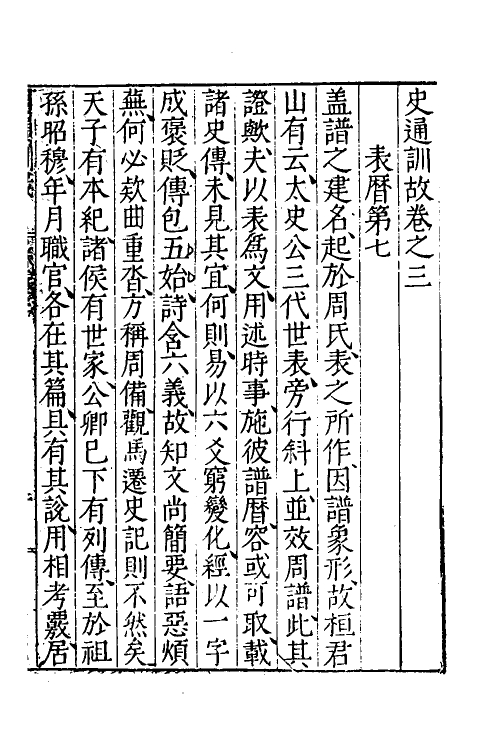 史通訓故卷之三
表曆第七
盖譜之建名起於周氏表之所作因譜象形故桓君
山有云太史公三代世表旁行斜上並效周譜此其
證歟夫以表爲文用述時事施彼譜曆容或可取載
諸史傳未見其宜何則易以六爻窮變化經以一字
成褒貶傳包五始詩含六義故知文尚簡要語惡煩
蕪何必欸曲重沓方稱周備觀馬遷史記則不然矣
天子有本紀諸侯有世家公卿巳下有列傳至於祖
孫昭穆年月職官各在其篇具有其說用相考覈居